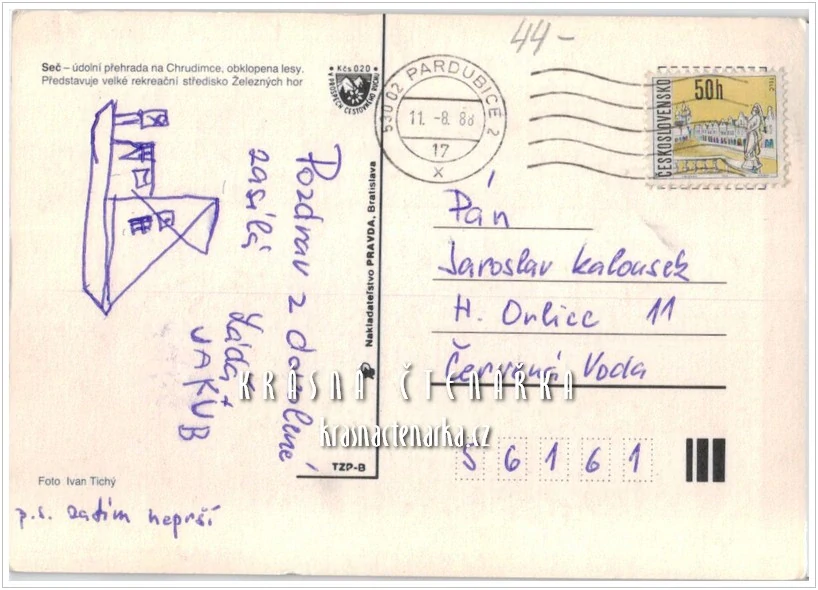 44-
Seč – údolní přehrada na Chrudimce, obklopena lesy.
Představuje velké rekreační středisko Železných hor
Kčs 0,20
V PROSPĚCH CESTOVNÉHO RUCHU
530 02 PARDUBICE 2
11. -8. 88
17
x
ČESKOSLOVENSKO
50h
Pozdrav z dovolené
zasílá
Láďa +
JAKUB
Nakladateľstvo PRAVDA, Bratislava
Pán
Jaroslav Kalousek
H. Orlice 11
Červená Voda
KRÁSNÁ ČTENÁŘKA
krasnactenarka.cz
56161
TZP-B
Foto Ivan Tichý
p.s. zatím neprší